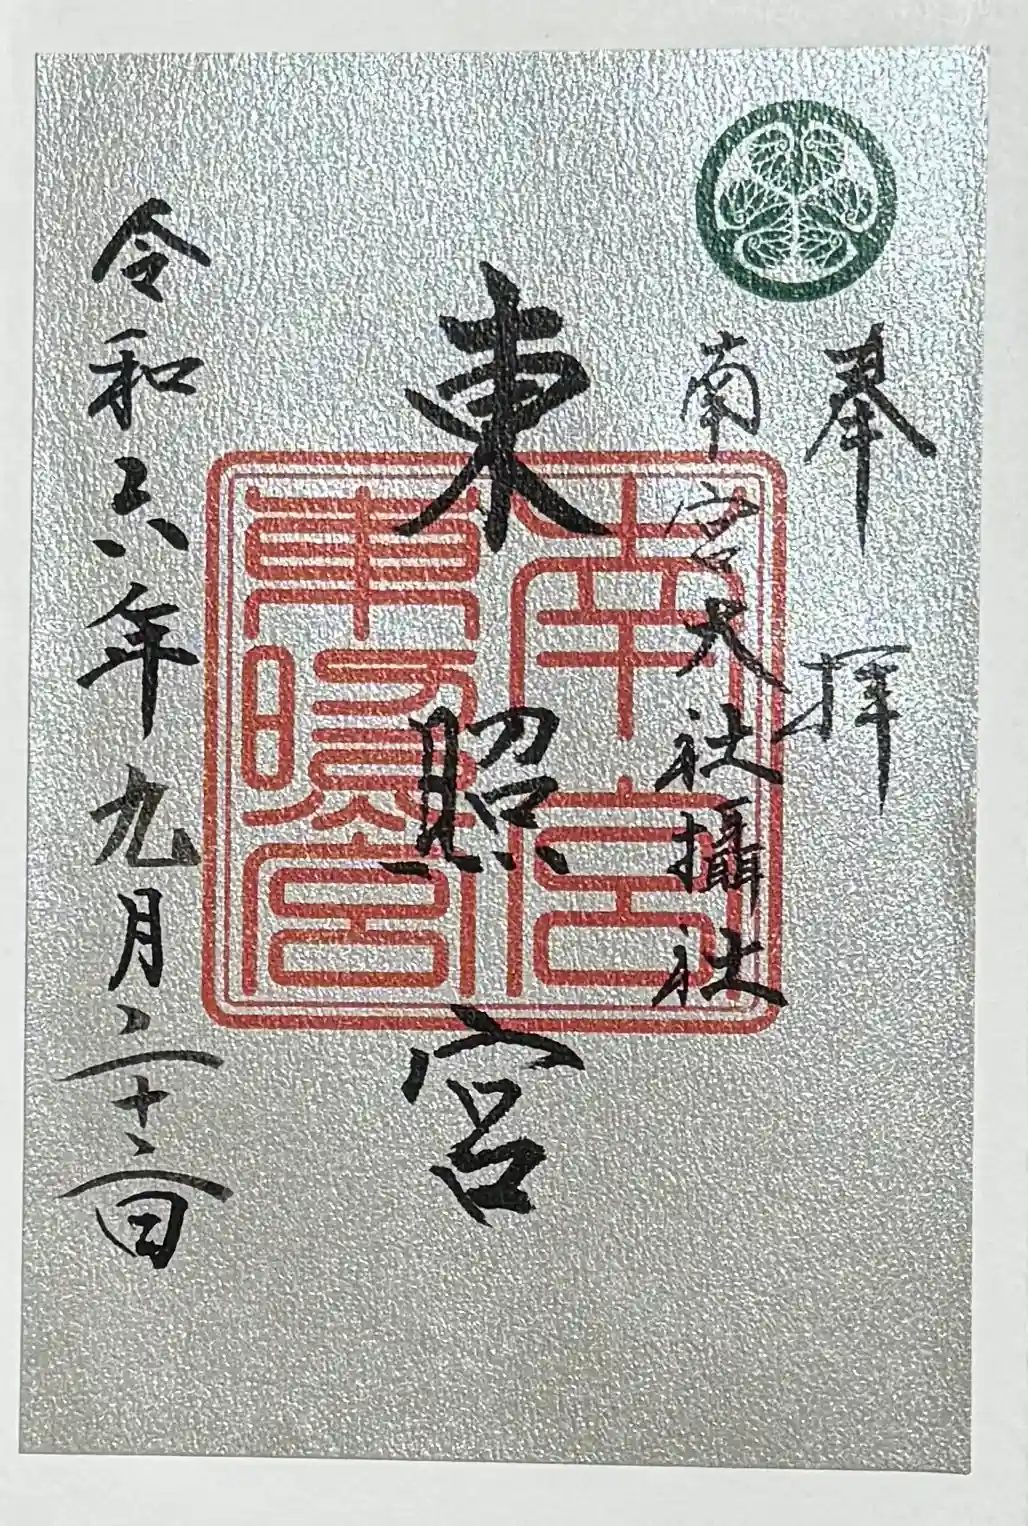 奉拝
南宮大社攝社
東照宮
南宮
東照宮
令和六年九月二十二日